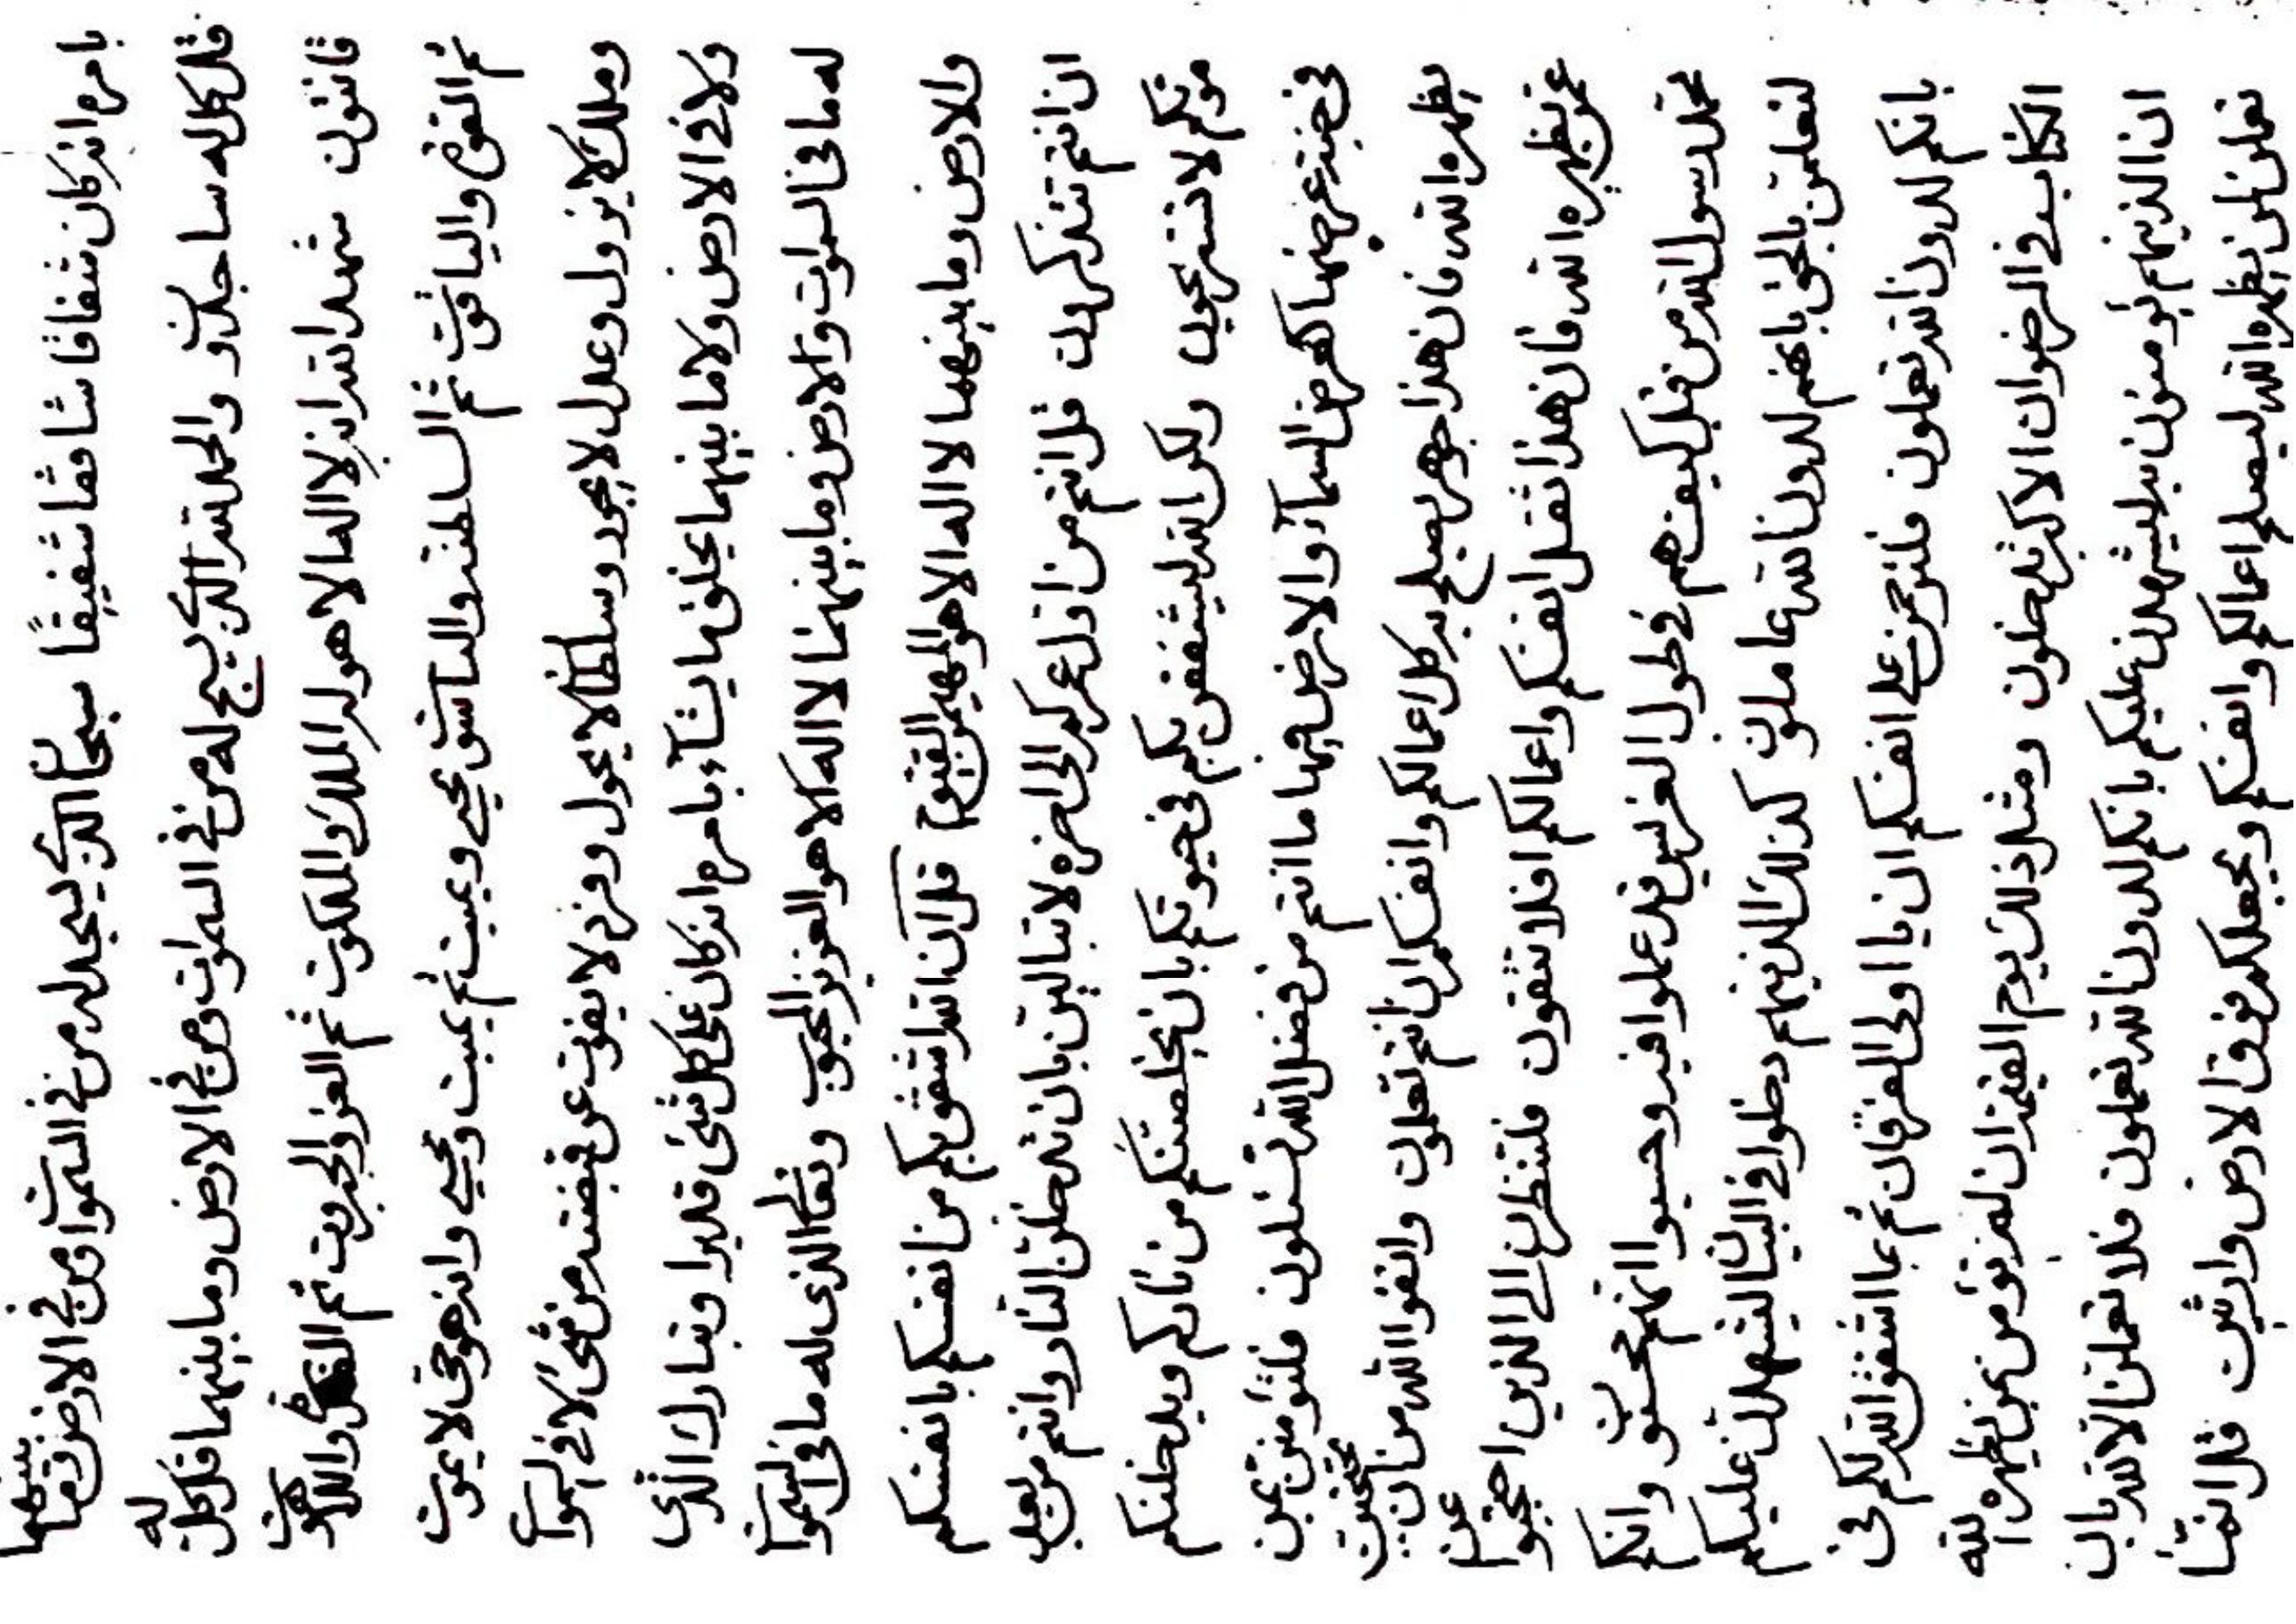 بامره انه كان شفاقا شافقا شفيقا سبحان الذي يسجد له من في السموات ومن في الارض وما بينهما
قل كل له ساجدون والحمد لله الذي يسبح له من في السموات ومن في الارض وما بينهما قل كل له
قانتون شهد الله انه لا اله الا هو له الملك والملكوت ثم العز والجبروت ثم القدرة واللاهوت
ثم القوة والياقوت ثم السلطنة والناسوت يحيي ويميت ثم يميت ويحيي وانه هو حي لا يموت
وملك لا يزول وعدل لا يجور وسلطان لا يحول وفرد لا يفوت عن قبضته من شئ لا في السموات
ولا في الارض ولا ما بينهما يخلق ما يشاء بامره انه كان على كل شئ قديرا وتبارك الذي
له ما في السموات والارض وما بينهما لا اله الا هو العزيز المحبوب وتعالى الذي له ما في السموات
والارض وما بينهما لا اله الا هو المهيمن القيوم قل ان الله اشفق بكم من انفسكم بانفسكم
ان انتم تتذكرون قل انتم من اول عمركم الى اخره لا تبالين بان تدخلن النار وانتم من بعد
موتكم لا تسترجعون ولكن الله ليشفقن بكم في حيوتكم بان يخلصنكم من ناركم ويدخلنكم
في جنة عرضها كعرض السماء والارض فيها ما انتم من فضل الله تسئلون فلتؤمنن بمن
يظهره الله فان هذا جوهر يصلح به كل اعمالكم وانفسكم ان انتم تعلمون واتقوا الله من ان تحتجبن
عمن يظهره الله فان هذا تقدر انفسكم واعمالكم افلا تتقون فلتنظرن الى الذين احتجبوا عن
محمد رسول الله من قبل كيف هم في طول الفرس قد عملوا فيه وحسبوا انهم محسنون وانكم
لتعلمن بالحق بانهم لدون الله عاملون كذلك الذينهم دخلوا في البيان ليشهدن عليكم
بانكم لدون الله تعملون فلترحمن على انفسكم ان يا اولى الفرقان ثم بما اشفق الله لكم في
الكتاب في الرضوان الاكبر تدخلون ومثل ذلك يوم القيمة ان لم تؤمنن بمن يظهره الله
ان الذينهم يؤمنون به ليشهدن عليكم بانكم لدون الله تعملون فلا تعملن الا لله بان
تعملن لمن يظهره الله ليصلح اعمالكم وانفسكم ويجعلكم فوق الارض وارثين قل انما